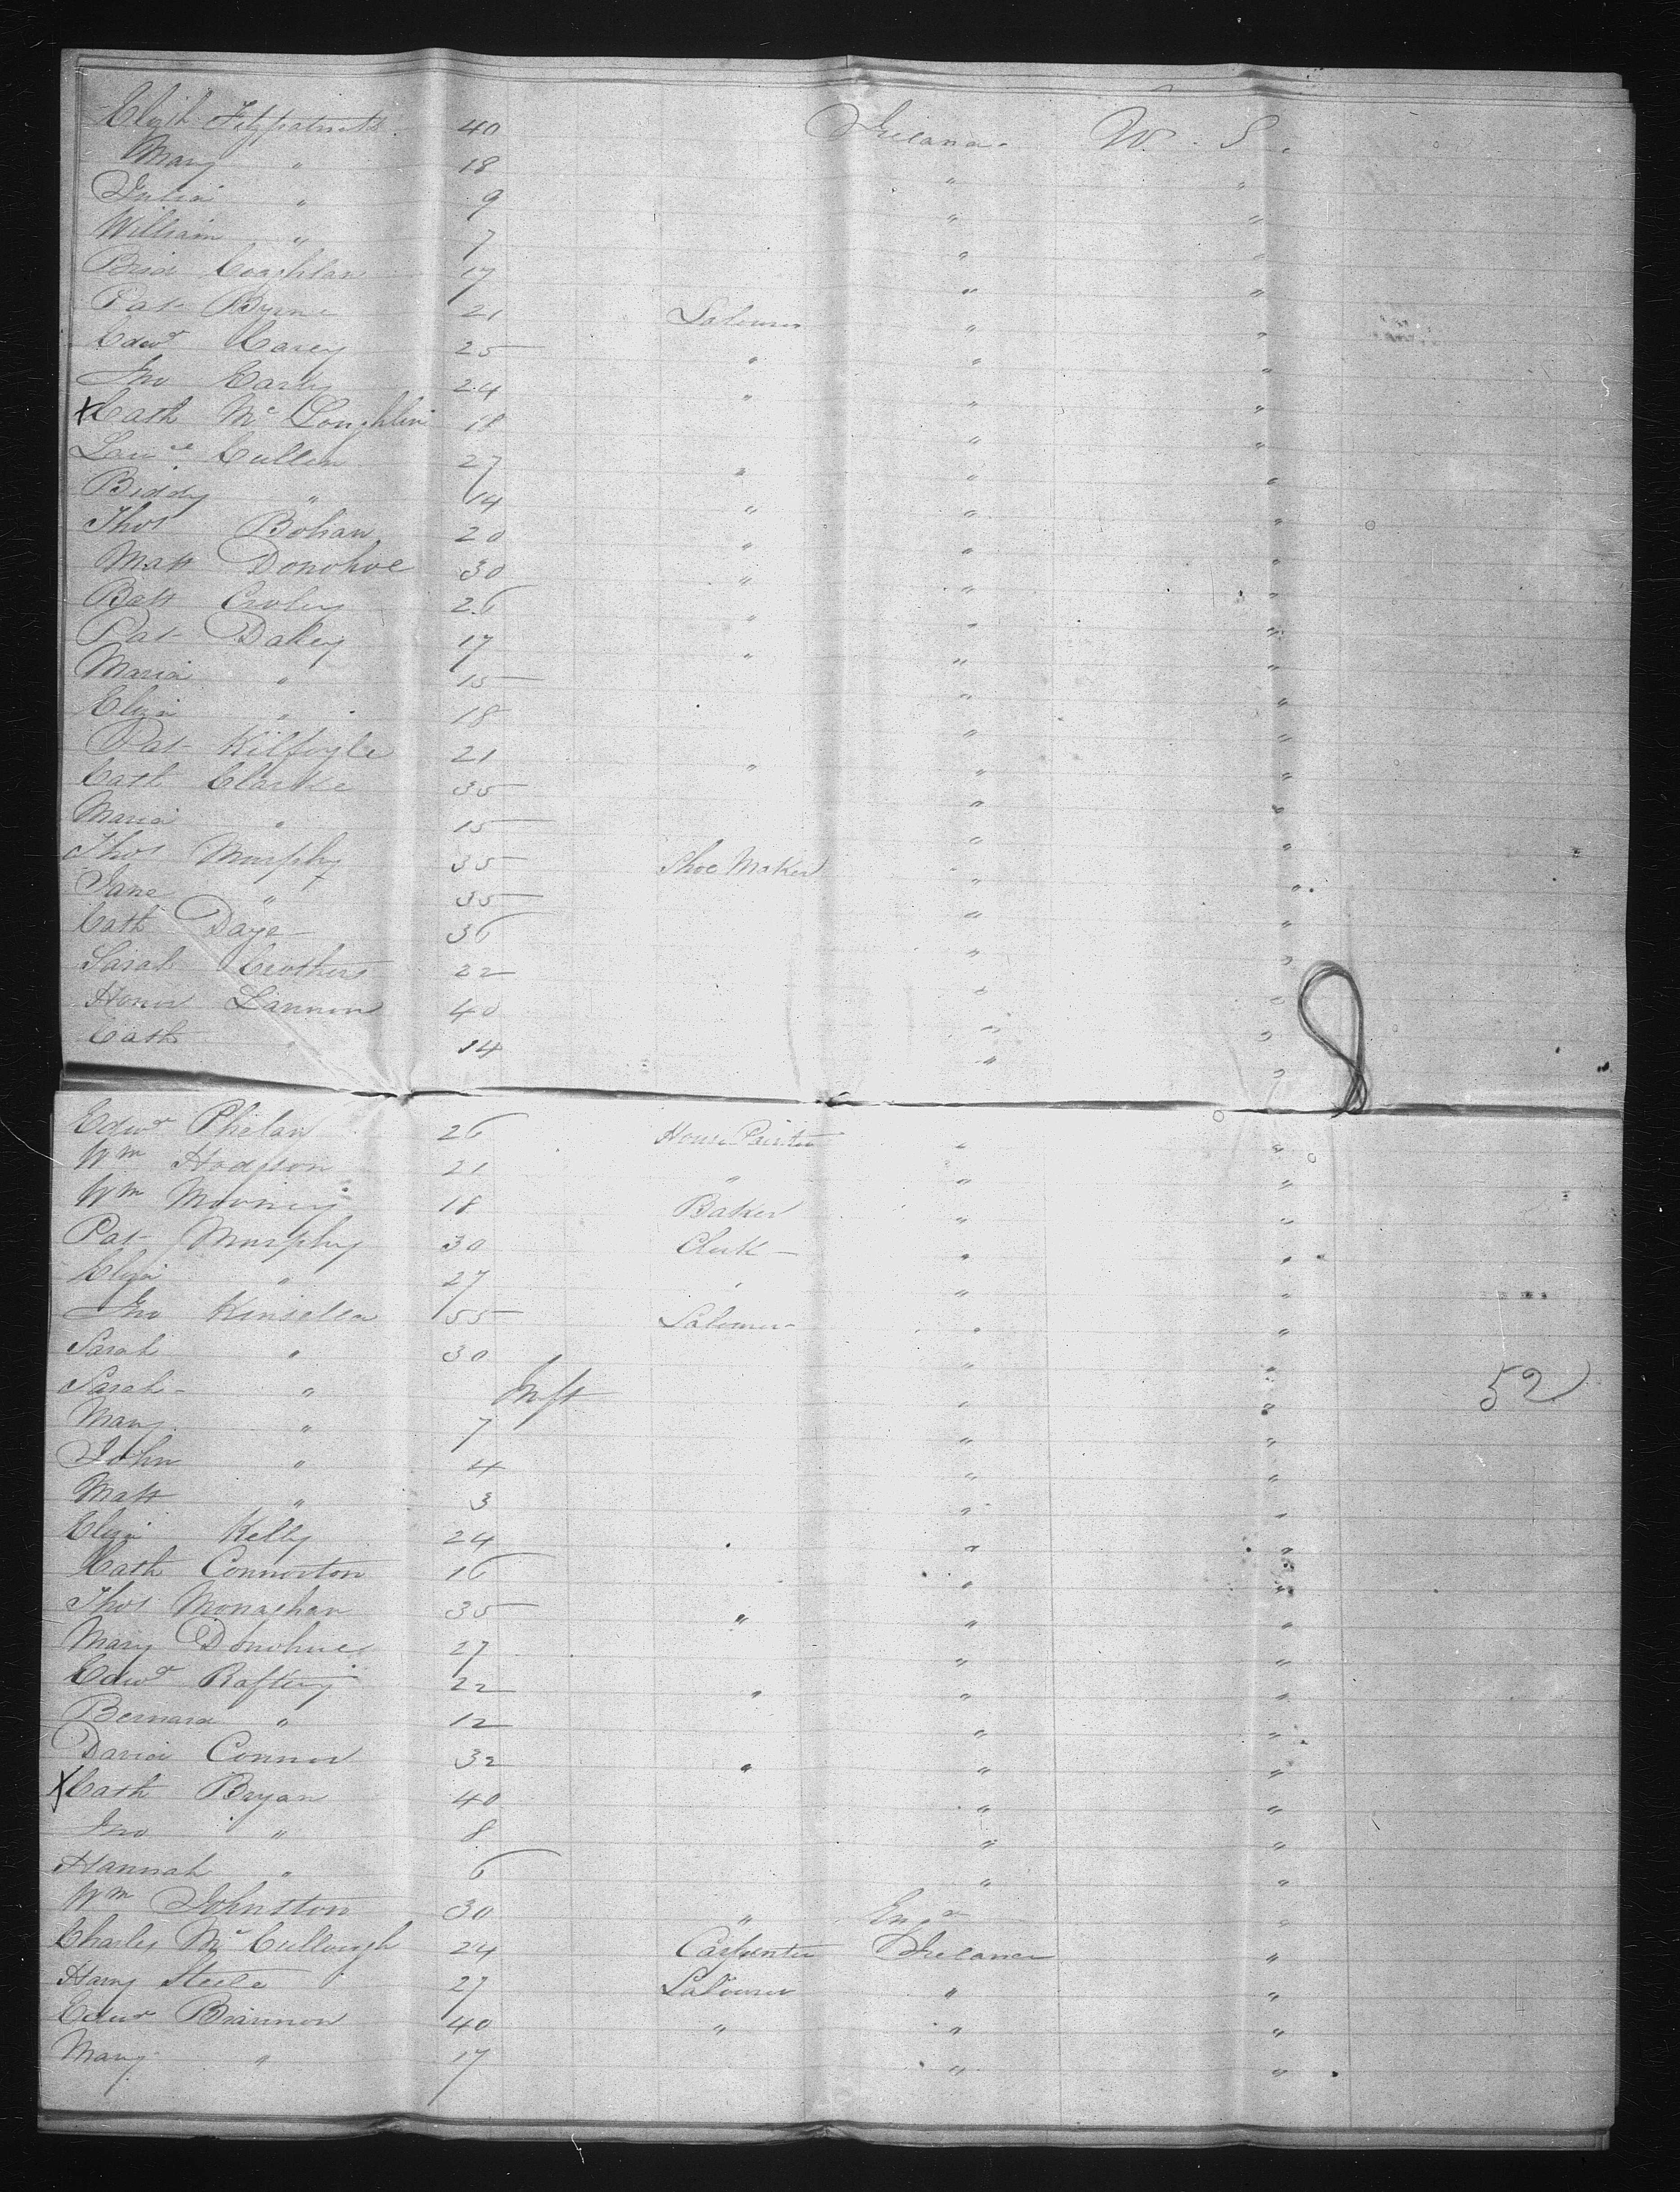 Elizth Fitzpatrick 40 Ireland. U. S.
Mary " 18 " "
Julia " 9 " "
William " 7 " "
Brid Coaghlan 17 " "
Pat Byrne 21 Labourer " "
Edwd Carey 25 " " "
Jno Carey 24 " " "
x Cath McLoughlin 18 " "
Lawce Cullen 27 " " "
Biddy " 14 " " "
Thos Bohan 20 " " "
Matt Donohoe 30 " " "
Batt Croley 26 " " "
Pat Dakey 17 " " "
Maria " 15 " "
Eliza " 18 " "
Pat Kilfoyle 21 " " "
Cath Clarke 35 " "
Maria " 15 " "
Thos Murphy 35 Shoe Maker " "
Jane " 35 " "
Cath Daye 36 " "
Sarah Crothers 22 " "
Honor Lannon 40 " "
Cath " 14 " "
8
Edwd Phelan 26 House Painter " "
Wm Hodgson 21 " " "
Wm Mooney 18 Baker " "
Pat Murphy 30 Clerk " "
Eliza " 27 " "
Jno Kinsella 55 Labourer " "
Sarah " 30 " "
Sarah " Inft " " 52
Mary " 7 " "
John " 4 " "
Matt " 3 " "
Eliza Kelly 24 " "
Cath Connorton 16 " "
Thos Monaghan 35 " " "
Mary Donohue 27 " "
Edwd Raftery 22 " " "
Bernard " 12 " "
David Connor 32 " " "
x Cath Bryan 40 " "
Jno " 8 " "
Hannah " 6 " "
Wm Johnston 30 " Engd "
Charles McCullough 24 Carpenter Ireland "
Harry Steele 27 Labourer " "
Edwd Brannon 40 " " "
Mary " 17 " "